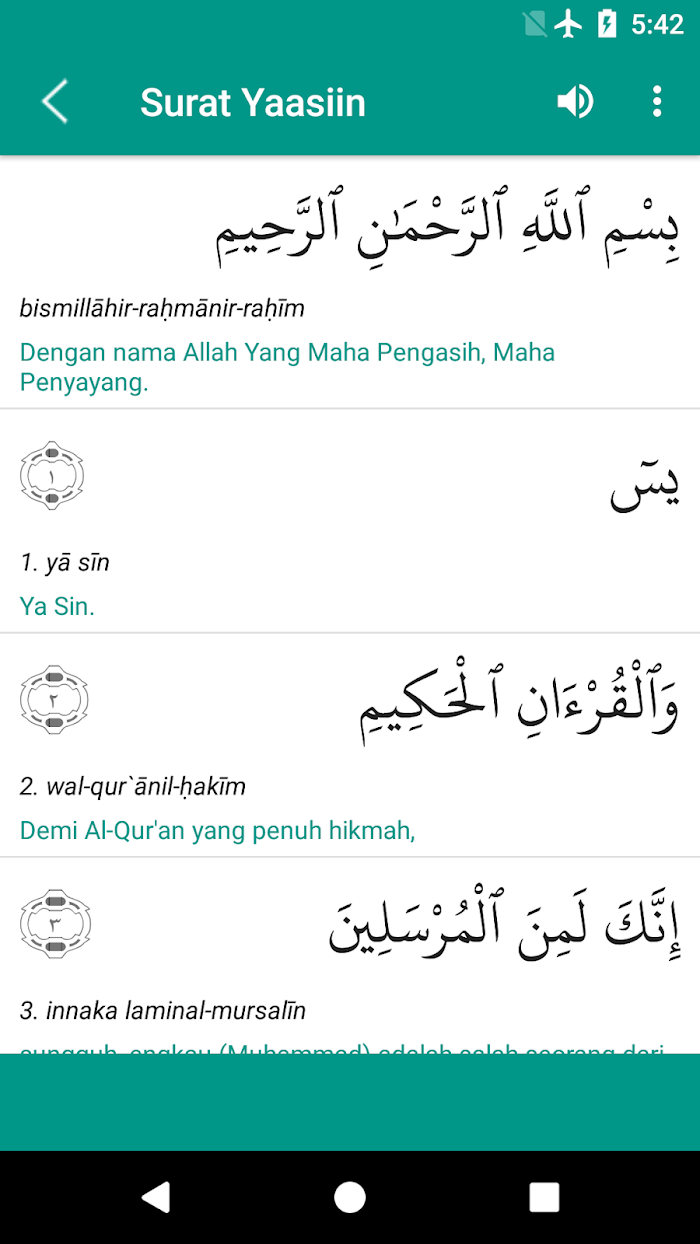 5:42
Surat Yaasiin
بِسْمِ ٱللَّهِ ٱلرَّحْمَـٰنِ ٱلرَّحِيمِ
bismillāhir-raḥmānir-raḥīm
Dengan nama Allah Yang Maha Pengasih, Maha
Penyayang.
١
يسٓ
1. yā sīn
Ya Sin.
٢
وَٱلْقُرْءَانِ ٱلْحَكِيمِ
2. wal-qur`ānil-ḥakīm
Demi Al-Qur'an yang penuh hikmah,
٣
إِنَّكَ لَمِنَ ٱلْمُرْسَلِينَ
3. innaka laminal-mursalīn
sungguh, engkau (Muhammad) adalah salah seorang dari